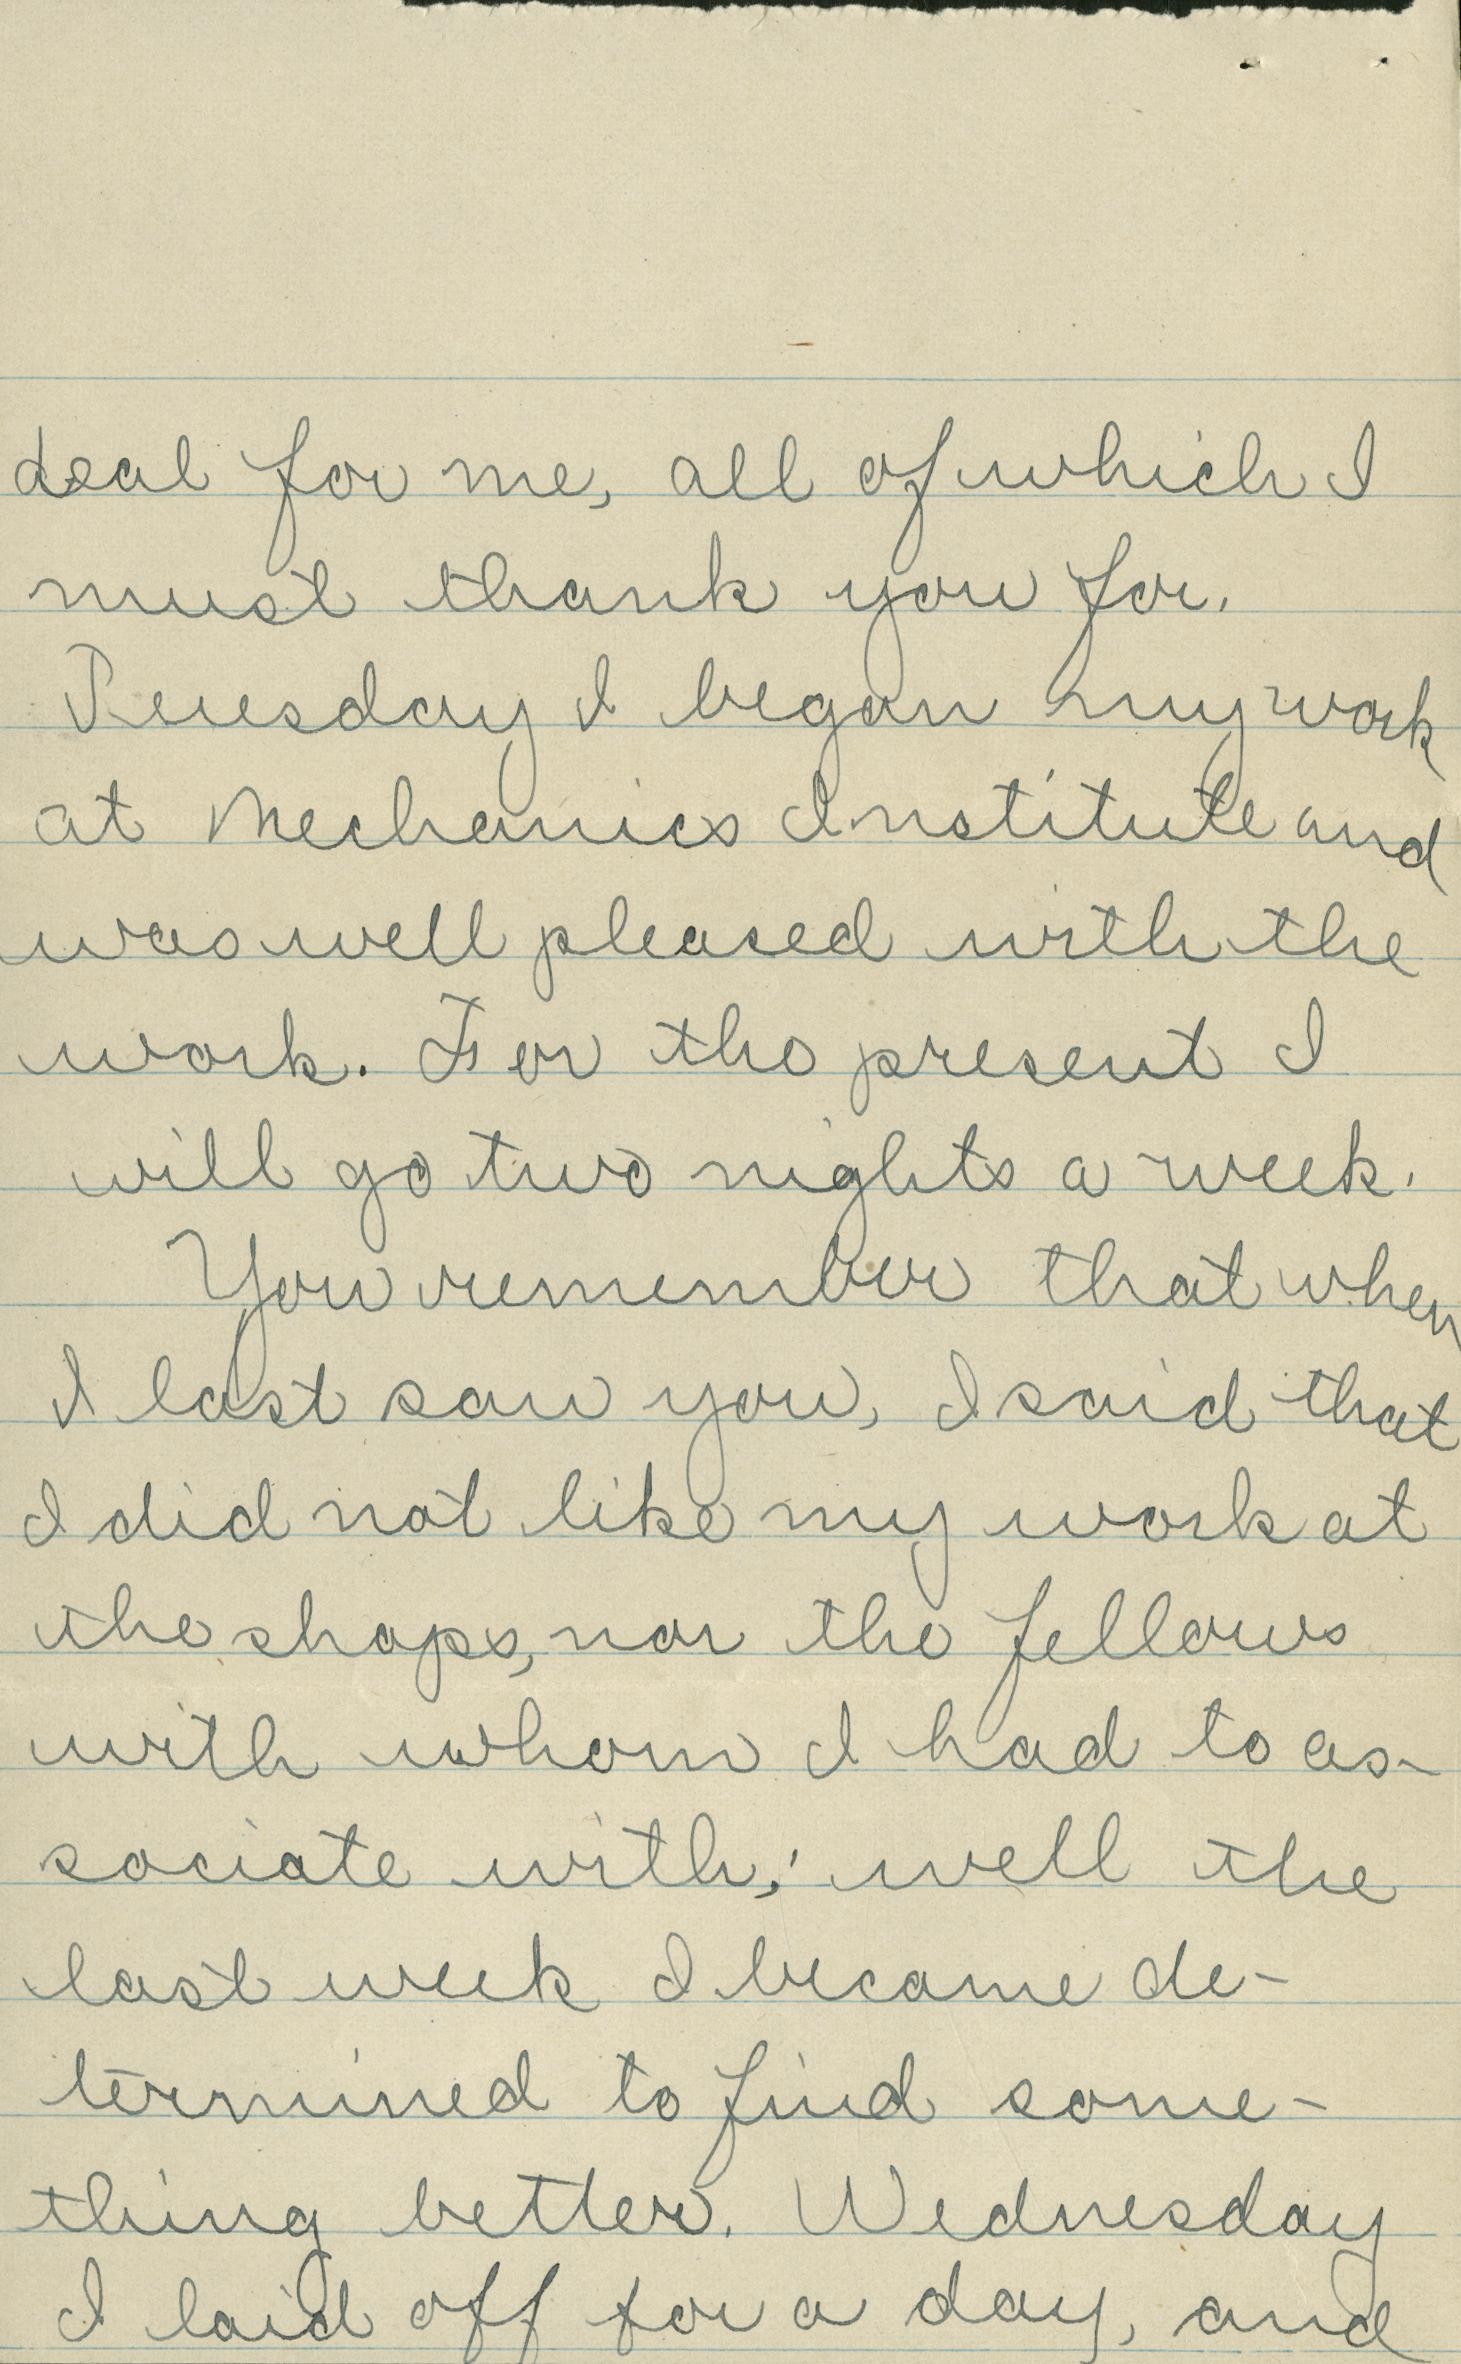 deal for me, all of which I
must thank you for.
Tuesday I began my work
at Mechanics Institute and
was well pleased with the
work. For the present I
will go two nights a week.
You remember that when
I last saw you, I said that
I did not like my work at
the shops, nor the fellows
with whom I had to as-
sociate with; well the
last week I became de-
termined to find some-
thing better. Wednesday
I laid off for a day, and